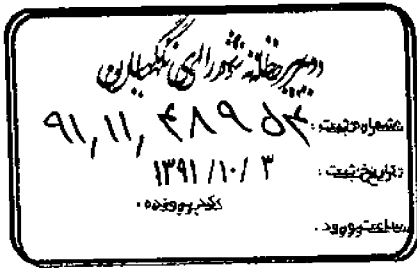 دبیرخانه شورای نگهبان
شماره ثبت: ۹۱,۱۱,۴۸۹۵۴
تاریخ ثبت: ۱۳۹۱/۱۰/۳
کد پرونده:
ساعت ورود: